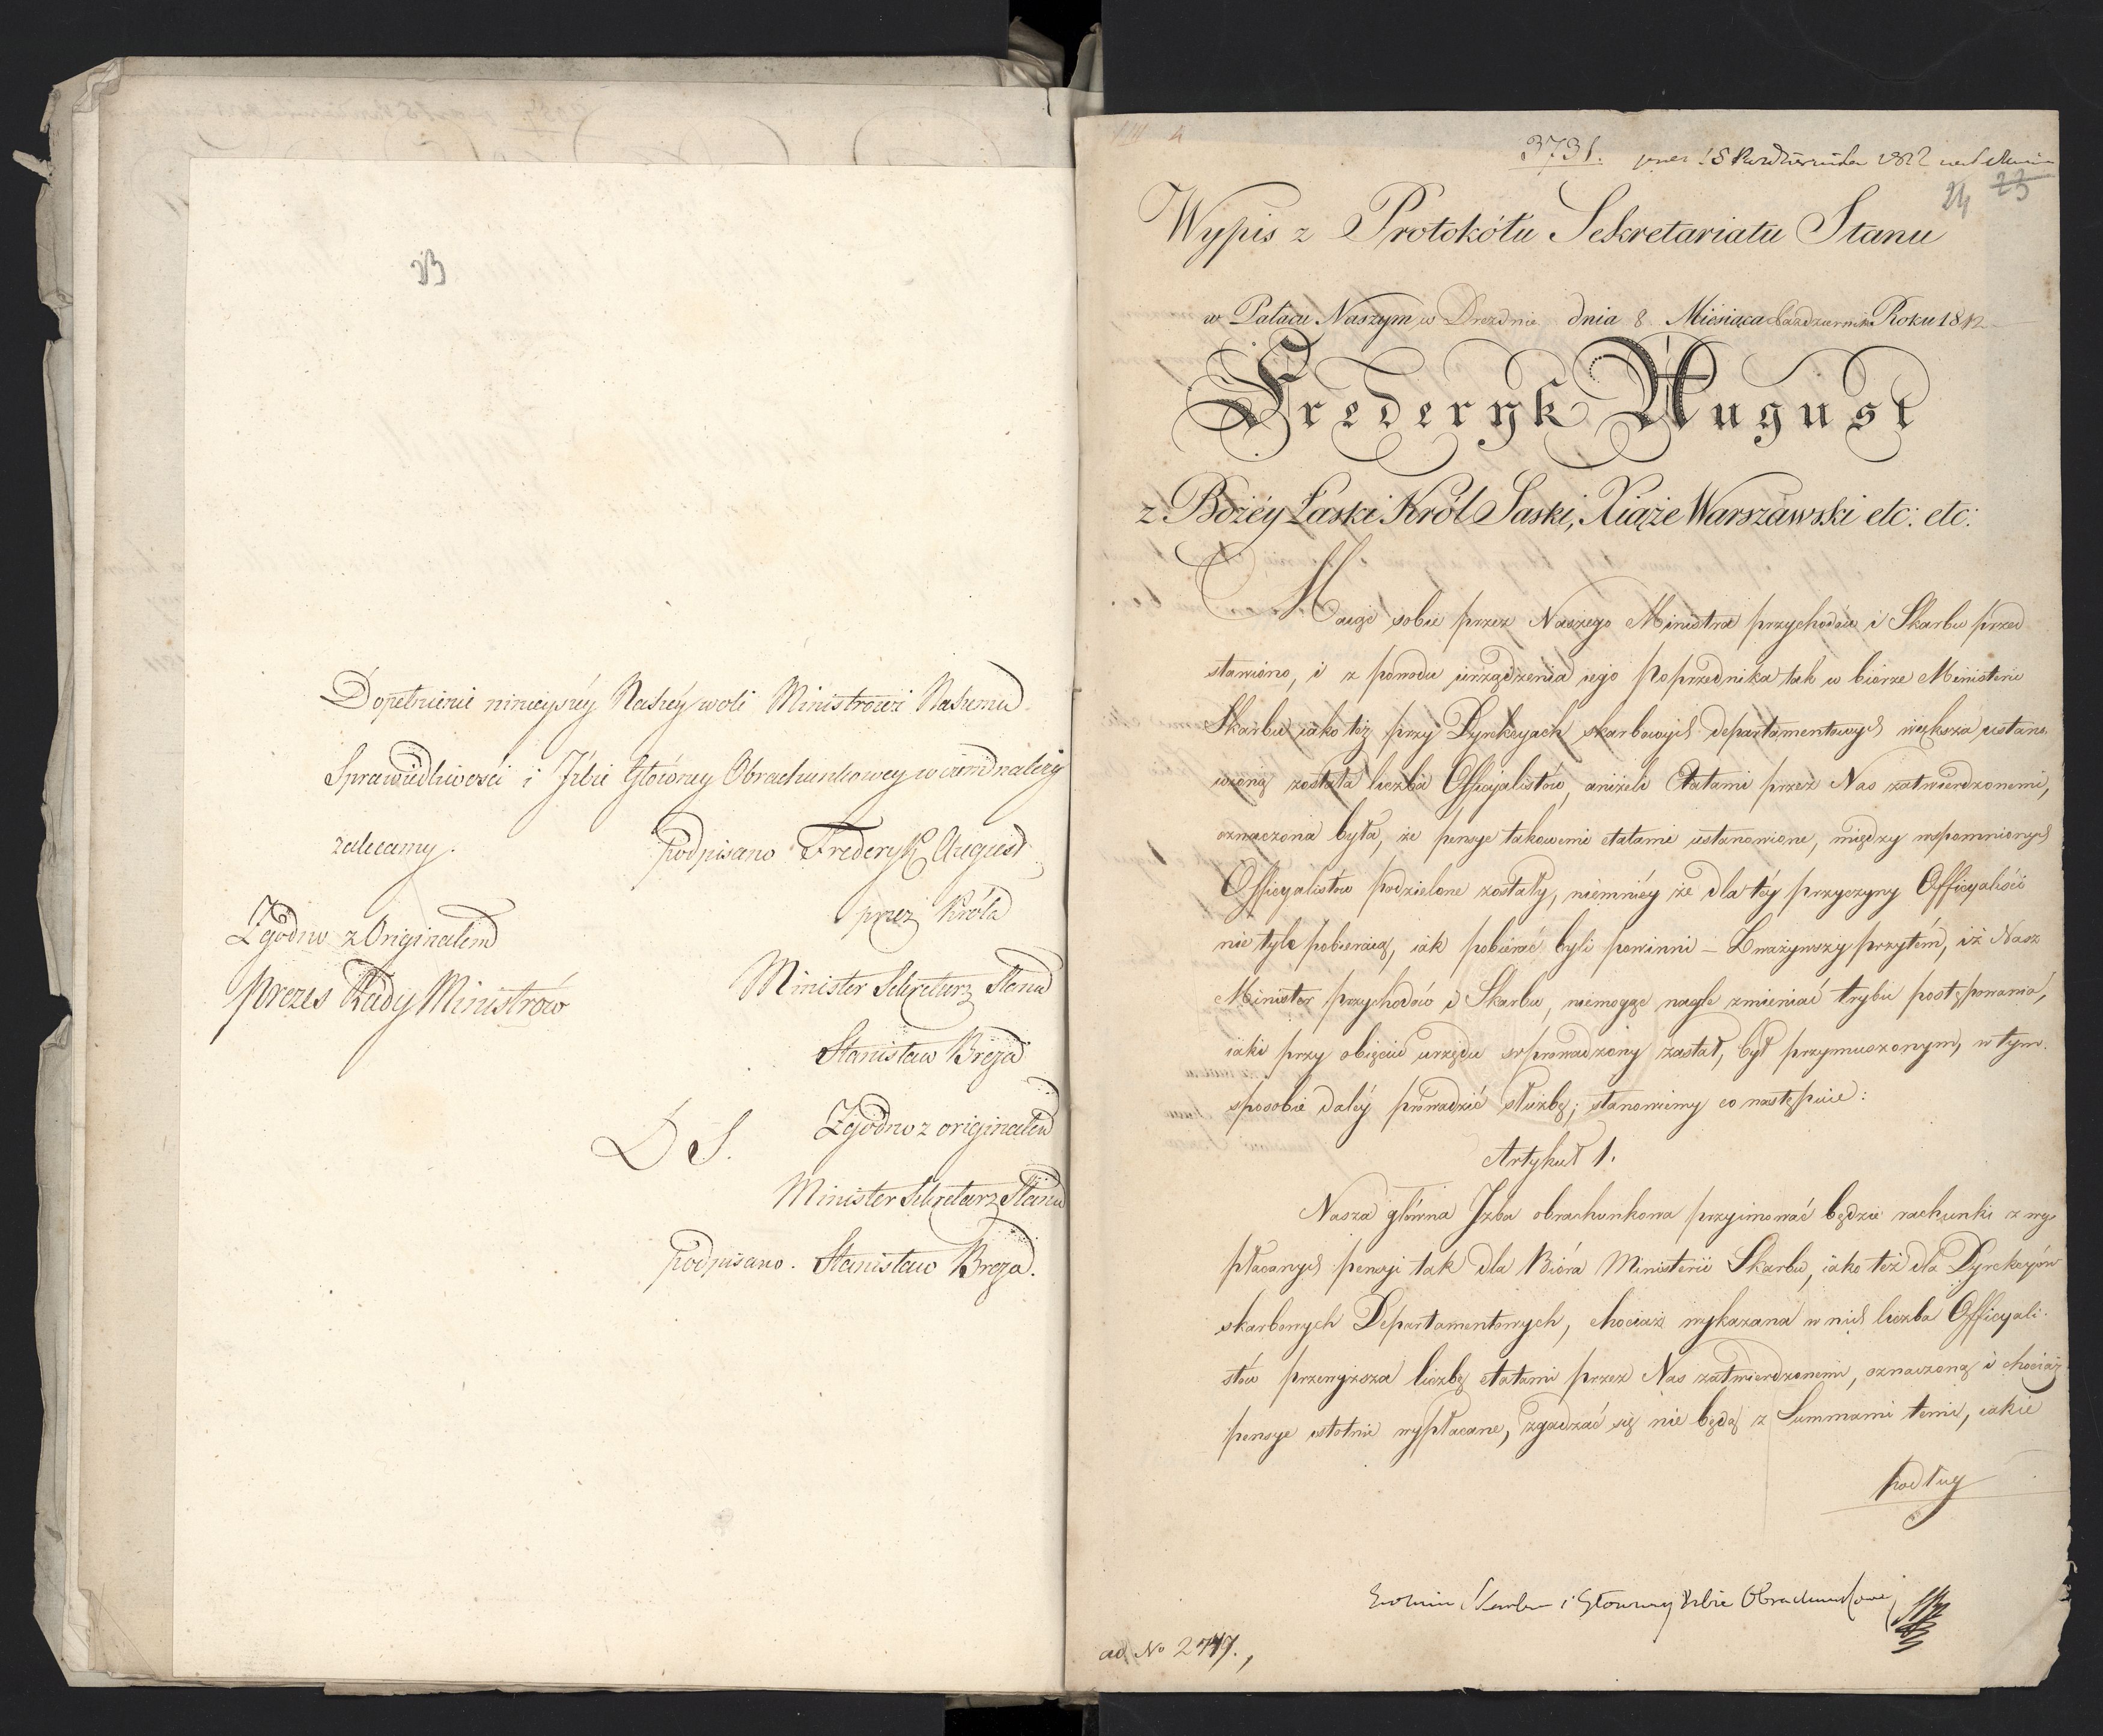 Dopełnienie ninieyszéy Naszéy woli Ministrowi Naszemu
Sprawiedliwości i Jzbie Główney Obrachunkowey w czem należy
zalecamy.
podpisano Frederyk August
przez Króla
Zgodno z Originałem
Prezes Rady Ministrów
Minister Sekretarz Stanu
Stanisław Breza
L S.
Zgodno z originałem
Minister Sekretarz Stanu
podpisano. Stanisław Breza.
3731. 15 Października 1812
24 23
Wypis z Protokółu Sekretariatu Stanu
w Pałacu Naszym w Dreznie dnia 8 Miesiąca Października Roku 1812
Frederyk August
z Bożéy Łaski Król Saski, Xiąże Warszawski etc: etc:
Maiąc sobie przez Naszego Ministra przychodów i Skarbu przed
stawiono, iż z powodu urządzenia iego Poprzednika tak w biórze Ministerii
Skarbu iako też przy Dyrekcyach skarbowych departamentowych większa ustano
wioną została liczba Officyalistów, aniżeli Etatami przez Nas zatwierdzonemi,
oznaczona była, że pensye takowemi etatami ustanowione, między wspomnionych
Officyalistów podzielone zostały, niemniéy że dla téy przyczyny Officyaliści
nie tyle pobieraią, iak pobierać byli powinni – Zważywszy przytém, iż Nasz
Minister przychodów i Skarbu, niemogąc nagle zmieniać trybu postępowania,
iaki przy obięciu urzędu wprowadzony zastał, był przymuszonym, w tym
sposobie daléy prowadzić służbę; stanowiemy co następuie:
Artykuł 1.
Nasza główna Jzba obrachunkowa przyimować będzie rachunki z wy
płacanych pensyi tak dla Bióra Ministerii Skarbu, iako też dla Dyrekcyów
skarbowych Departamentowych, chociaż wykazana w nich liczba Officyali-
stów przewyższa liczbę etatami przez Nas zatwierdzonemi, oznaczoną i chociaż
pensye istotnie wypłacane, zgadzać się nie będą z Summami temi, iakie
podług
Skarbu i Głowney Izbie Obrachunkowey
ad. No 2747.,